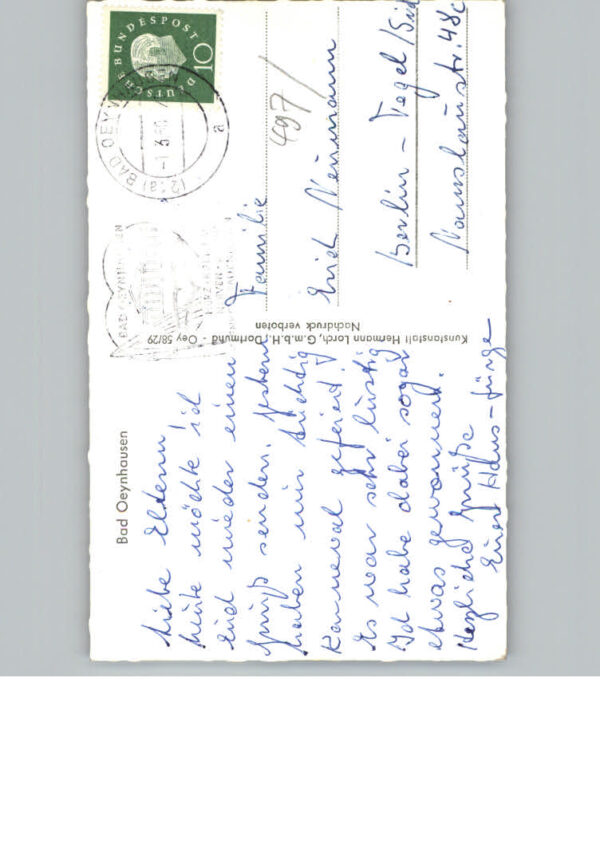 Bad Oeynhausen
Liebe Eltern!
Heute möchte ich
Euch wieder einen
Gruß senden. Gestern
haben wir tüchtig
Karneval gefeiert!
Es war sehr lustig
Ich habe dabei sogar
etwas gewonnen.
Herzliche Grüße
Euer Hans-Jürgen
Kunstanstalt Hermann Lorch, G.m.b.H. Dortmund - Oey 58/29
Nachdruck verboten
DEUTSCHE BUNDESPOST
10
(21a) BAD OEYNHAUSEN
a
BAD OEYNHAUSEN
497/
Familie
Erich Neumann
Berlin-Tegel/Süd
Namslaustr. 48c